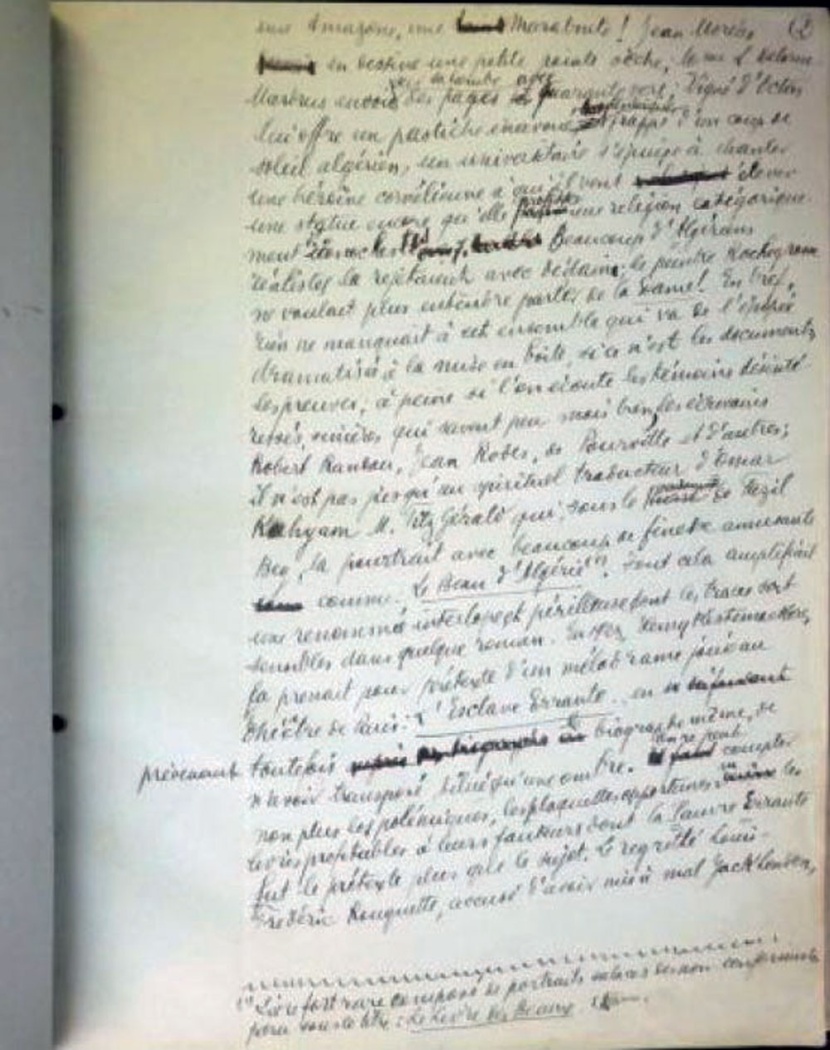 (2)
une Amazone, une Maraboute ! Jean Moréas
en destine une petite pointe sèche, Mme L Delarue
Mardrus envoie des pages
lui offre un pastiche frappé d'un coup de
soleil algérien, un universitaire s'épuise à chanter
une héroïne cornélienne à qui il veut élever
une statue encore qu'elle professe une religion catégorique-
ment Beaucoup d'Algériens
réalistes la rejetaient avec dédain; le peintre Rochegrosse
ne voulait plus entendre parler de la Dame! En bref,
rien ne manquait à cet ensemble qui va de l'épopée
dramatisée à la mise en boîte, si ce n'est les documents
les preuves; à peine si l'on écoute les témoins désinté-
ressés, sincères qui savent peu mais bien, les écrivains
Robert Randau, Jean Rodes, de Pourville et d'autres;
il n'est pas jusqu'au spirituel traducteur d'Omar
Kahyam M. Fitz Gérald qui, sous le de Fezil
Bey, la pourtrait avec beaucoup de finesse amusante
comme Le Beau d'Algérie (1). Tout cela amplifiait
une renommée interlope et périlleuse dont les traces sont
sensibles dans quelque roman. Henry Kistemaeckers,
la prenait pour prétexte d'un mélodrame joué au
théâtre de Paris: L'Esclave Errante en
prévenant toutefois biographe même, de
n'avoir transposé ici qu'une ombre. On ne peut compter
non plus les polémiques, les plaquettes opportunes les
livres profitables à leurs fauteurs dont la pauvre Errante
fut le prétexte plus que le sujet. Le regretté Louis-
Frédéric Rouquette, accusé d'avoir mis à mal Jack London,
(1) Livre fort rare composé de portraits
pour sous le titre : Le Livre des Beaux.